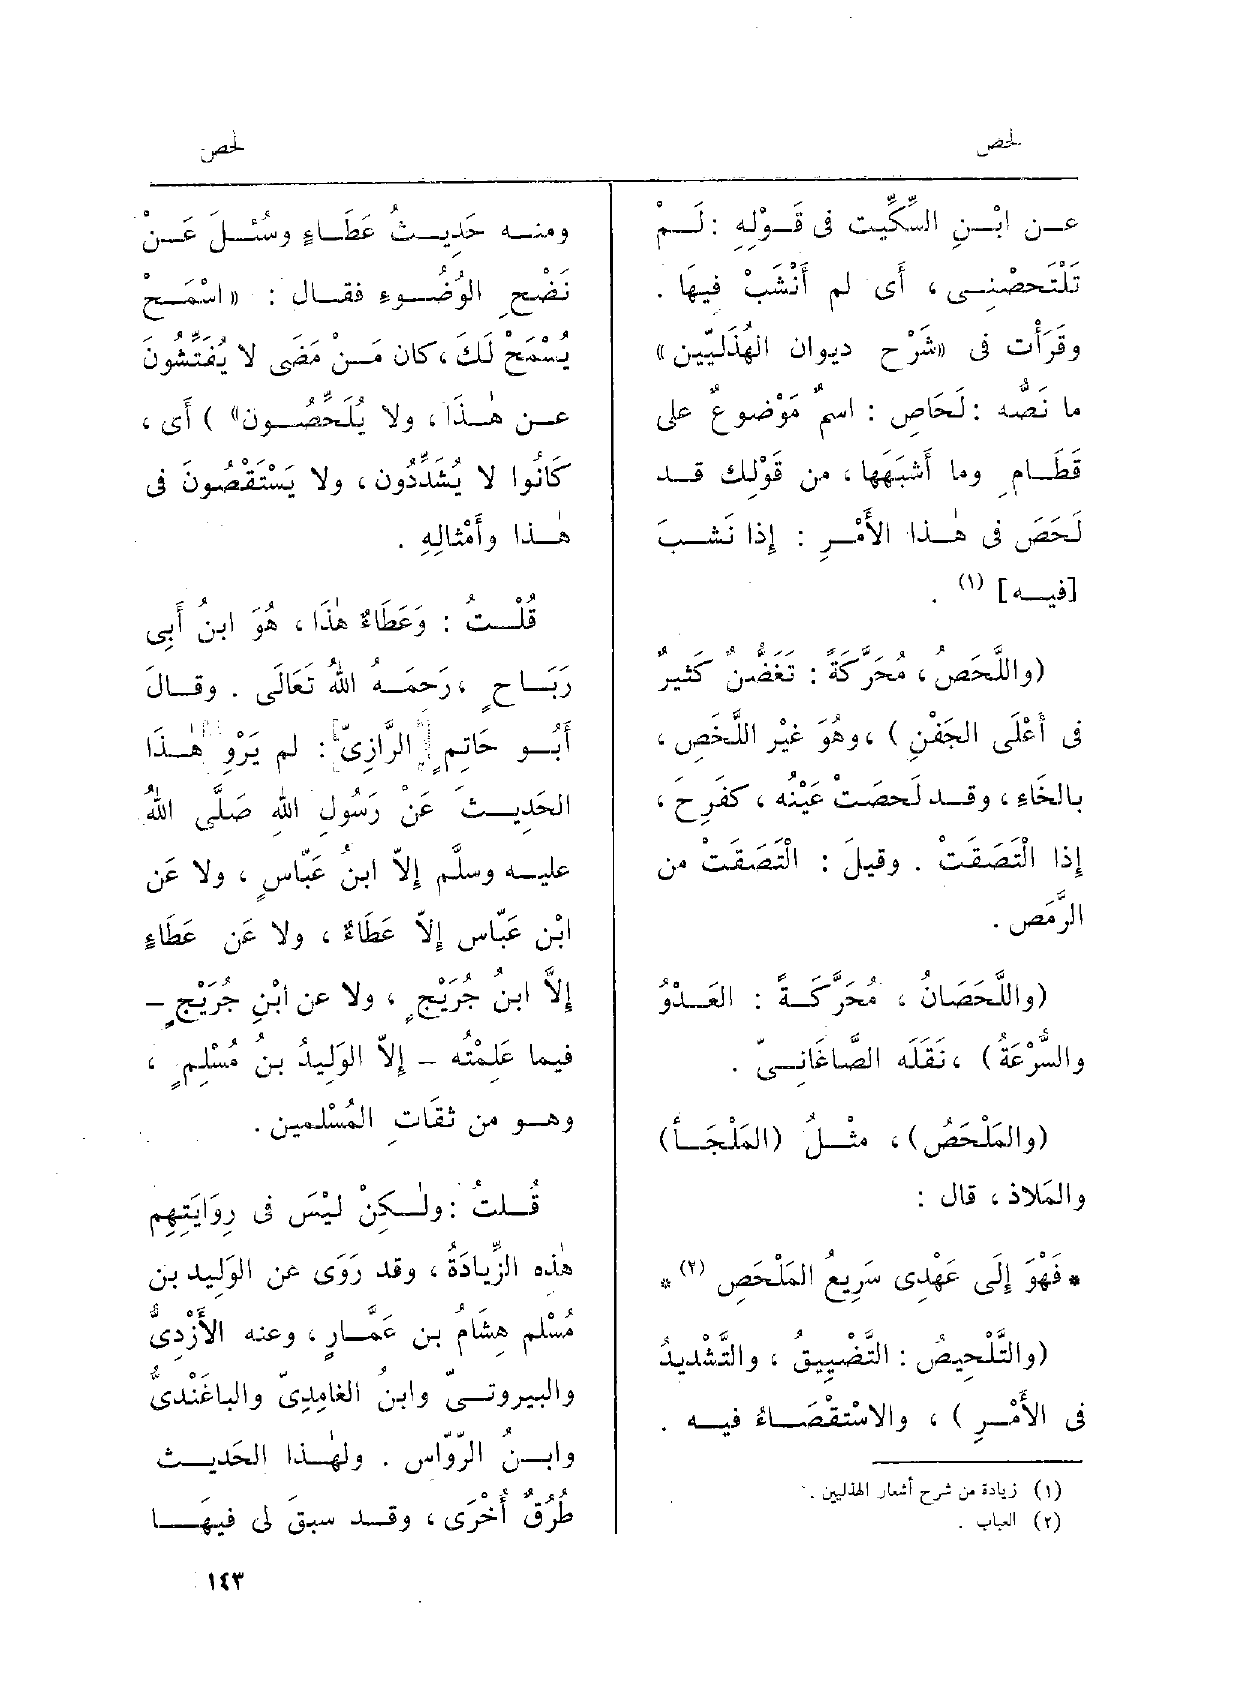 لحص
لحص
عـن ابْـنِ السِّكِّيت فى قَـوْلِهِ : لَـمْ
تَلْتَحِصْنِـى ، أَى لم أَنْشَبْ فِيهَا .
وقَرَأْت فى «شَرْح ديوان الهُذَلِيّين»
ما نَصُّه : لَحَاصِ : اسمٌ مَوْضوعٌ على
قَطَـامِ وما أَشبَهَها ، من قَوْلِك قـد
لَحَصَ فى هٰـذا الأَمْـرِ : إِذا نَشِـبَ
[فيـه] (١) .
(واللَّحَصُ ، مُحَرَّكَةً : تَغَضُّنٌ كَثِيرٌ
فى أَعْلَى الجَفْنِ ) ، وهُوَ غَيْر اللَّخَصِ ،
بالخَاءِ ، وقـد لَحِصَتْ عَيْنُه ، كفَرِحَ ،
إِذا الْتَصَقَتْ . وقيلَ : الْتَصَقَتْ من
الرَّمَصِ .
(واللَّحَصَانُ ، مُحَرَّكَـةً : العَـدْوُ
والسُّرْعَةُ) ، نَقَلَه الصَّاغَانِـىّ .
(والمَلْحَصُ) ، مثْـلُ (المَلْجَـأ)
والمَلاذ ، قال :
* فَهْوَ إِلَى عَهْدِى سَرِيعُ المَلْحَصِ (٢) *
(والتَّلْحِيصُ : التَّضْيِيقُ ، والتَّشْدِيدُ
فى الأَمْـرِ ) ، والاسْتِقْصَـاءُ فيـه .
(١) زيادة من شرح أشعار الهذليين .
(٢) العباب .
ومنـه حَدِيـثُ عَطَـاءٍ وسُئِـلَ عَـنْ
نَضْحِ الوُضُـوءِ فقـال : « اسْمَـحْ
يُسْمَحْ لَكَ ، كان مَـنْ مَضَى لا يُفَتِّشُونَ
عـن هٰـذَا ، ولا يُلَحِّصُـون» ) أَى ،
كَانُوا لا يُشَدِّدُون ، ولا يَسْتَقْصُونَ فى
هٰـذا وأَمْثالِهِ .
قُلْـتُ : وَعَطَاءٌ هٰذَا ، هُوَ ابنُ أَبِى
رَبَـاحٍ ، رَحِمَـهُ اللهُ تَعَالَى . وقـالَ
أَبُـو حَاتِمٍ [الرَّازِىّ] : لم يَرْوِ هٰـذَا
الحَدِيـثَ عَنْ رَسُولِ اللهِ صَلَّى اللهُ
عليـه وسلَّم إِلاّ ابنُ عَبّاسٍ ، ولا عن
ابْن عَبّاس إِلاّ عَطَاءٌ ، ولا عَن عَطَاءٍ
إِلاَّ ابنُ جُرَيْجٍ ، ولا عن ابْنِ جُرَيْجٍ –
فيما عَلِمْتُه – إِلاّ الوَلِيدُ بنُ مُسْلِمٍ ،
وهـو من ثقَاتِ المُسْلمين .
قُـلتُ : ولٰـكِنْ لَيْسَ فى رِوَايَتِهِم
هٰذه الزِّيادَةُ ، وقد رَوَى عن الوَلِيد بن
مُسْلم هِشَامُ بن عَمَّـارٍ ، وعنه الأَزْدِىُّ
والبيروتـىّ وابنُ الغَامِدِىّ والباغَنْدىُّ
وابـنُ الرّوّاس . ولهٰـذا الحَديـث
طُرُقٌ أُخْرَى ، وقـد سبَق لى فيهَـا
١٤٣